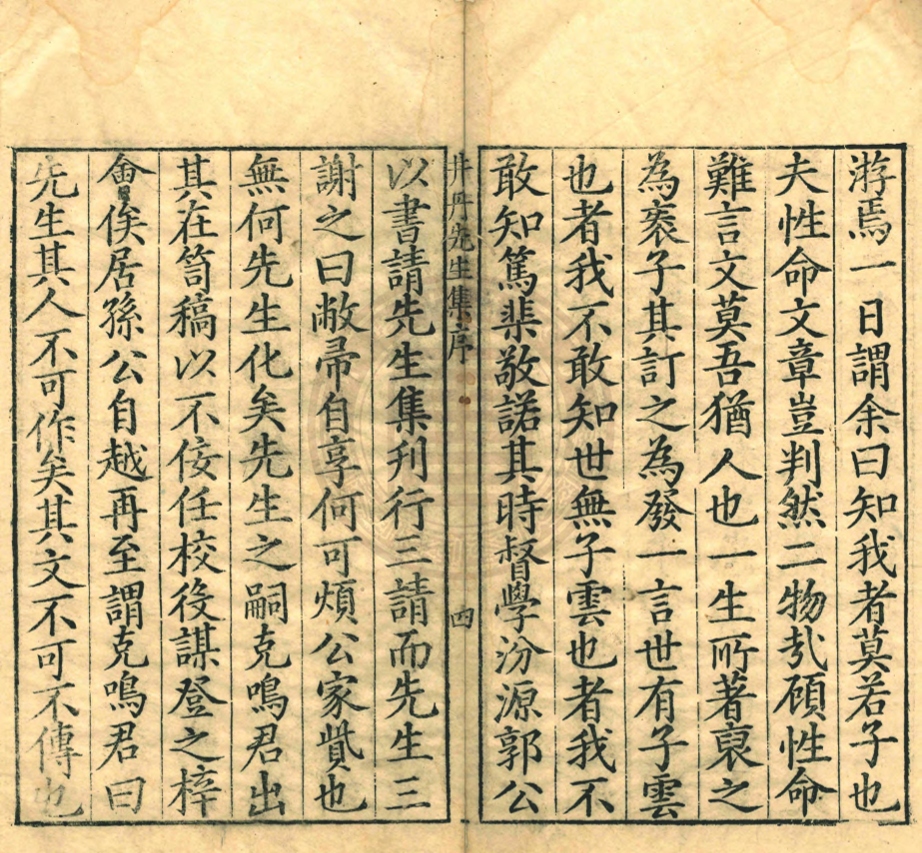 游焉一日謂余曰知我者莫若子也
夫性命文章豈判然二物哉顧性命
難言文莫吾猶人也一生所著裒之
為袠子其訂之為發一言世有子雲
也者我不敢知世無子雲也者我不
敢知篤棐敬諾其時督學汾源郭公
井丹先生集序
四
以書請先生集刋行三請而先生三
謝之曰敝帚自享何可煩公家貲也
無何先生化矣先生之嗣克鳴君出
其在笥稿以不佞任校役謀登之梓
會俟居孫公自越再至謂克鳴君曰
先生其人不可作矣其文不可不傳也